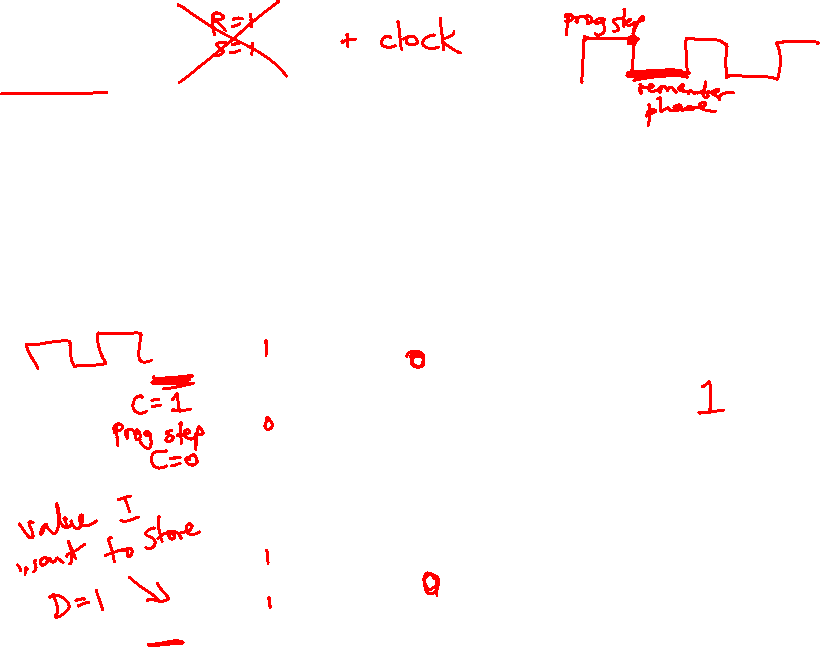 R=1
S=1
+ clock
prog step
remember
phase
1
0
C=1
0
1
prog step
C=0
value I
want to store
1
D=1
1
0